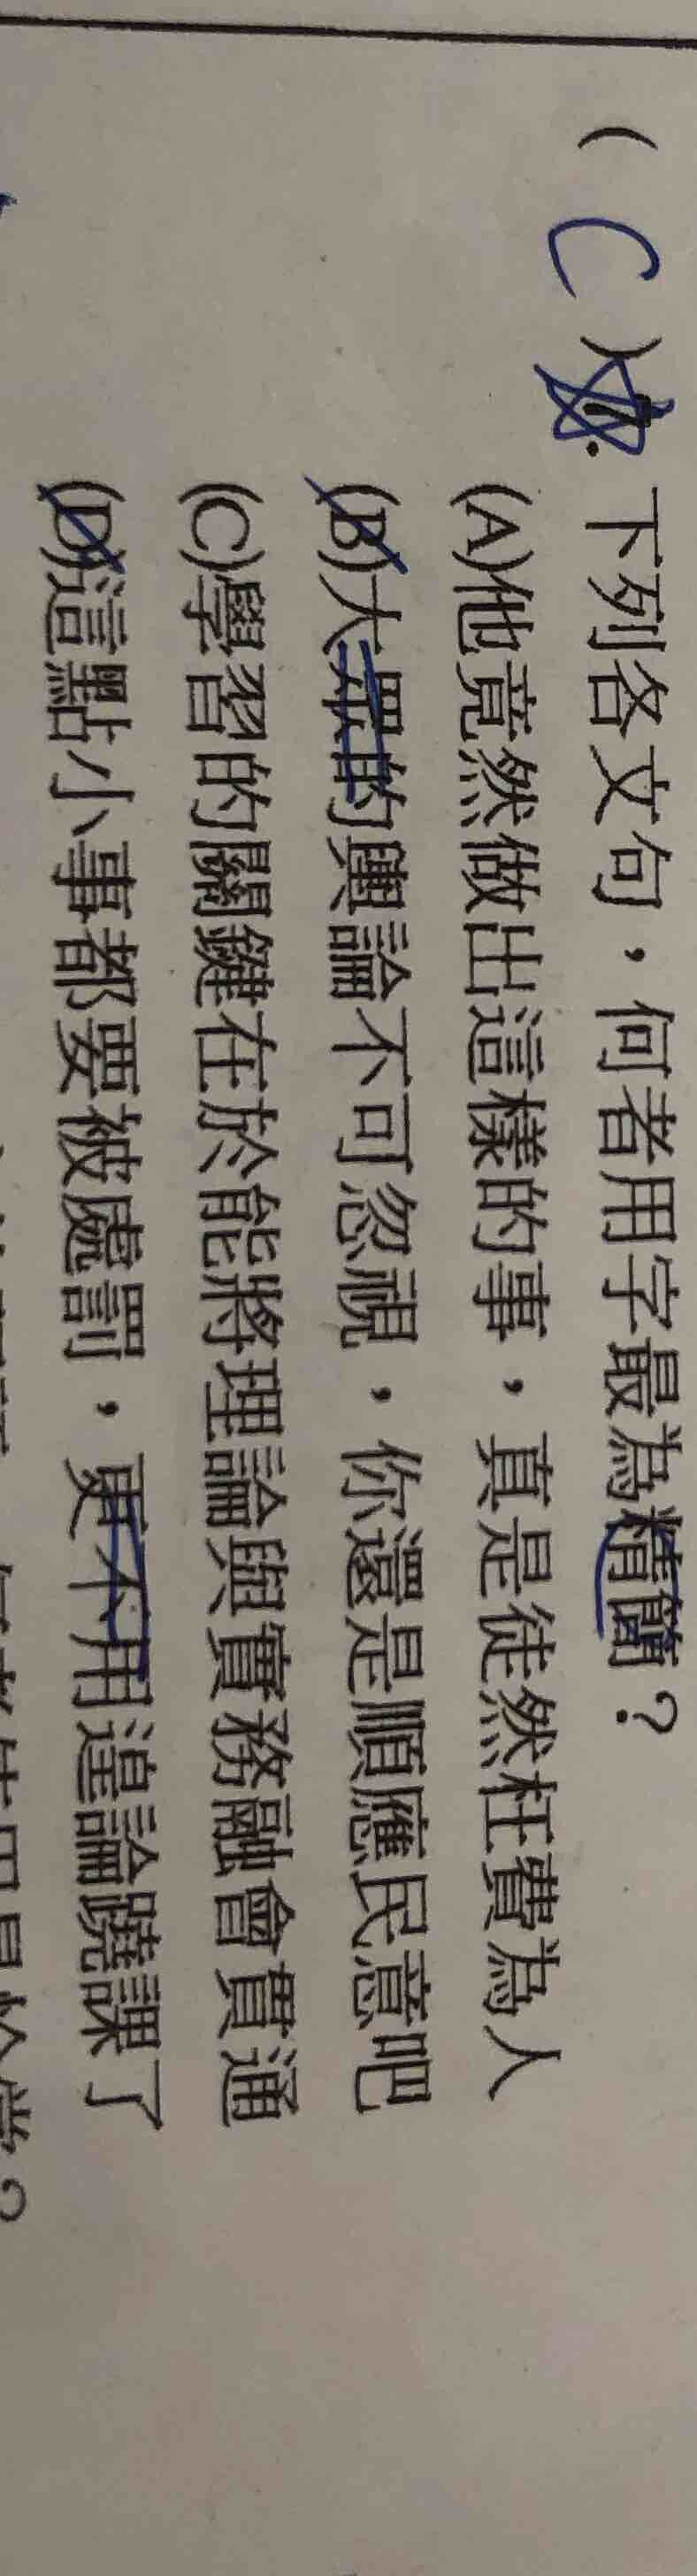 ( C )7. 下列各文句，何者用字最為精簡？
(A)他竟然做出這樣的事，真是徒然枉費為人
(B)大眾的輿論不可忽視，你還是順應民意吧
(C)學習的關鍵在於能將理論與實務融會貫通
(D)這點小事都要被處罰，更不用遑論蹺課了